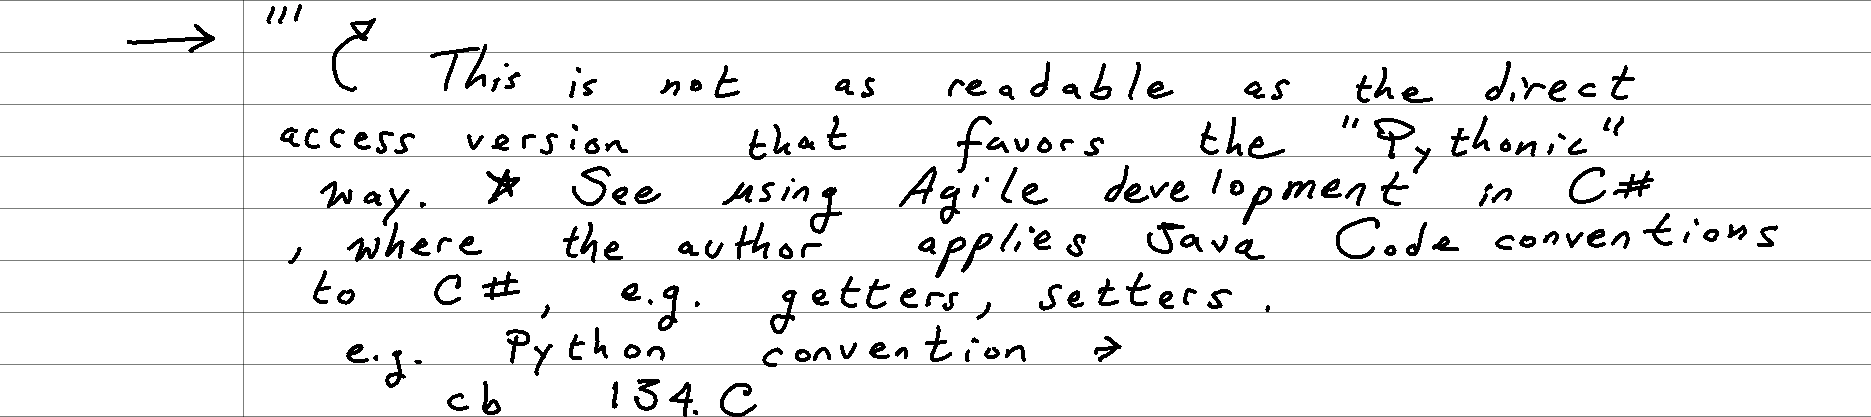 → '''
This is not as readable as the direct
access version that favors the "Pythonic"
way. * See using Agile development in C#
, where the author applies Java Code conventions
to C#, e.g. getters, setters.
e.g. Python convention →
cb 134.C